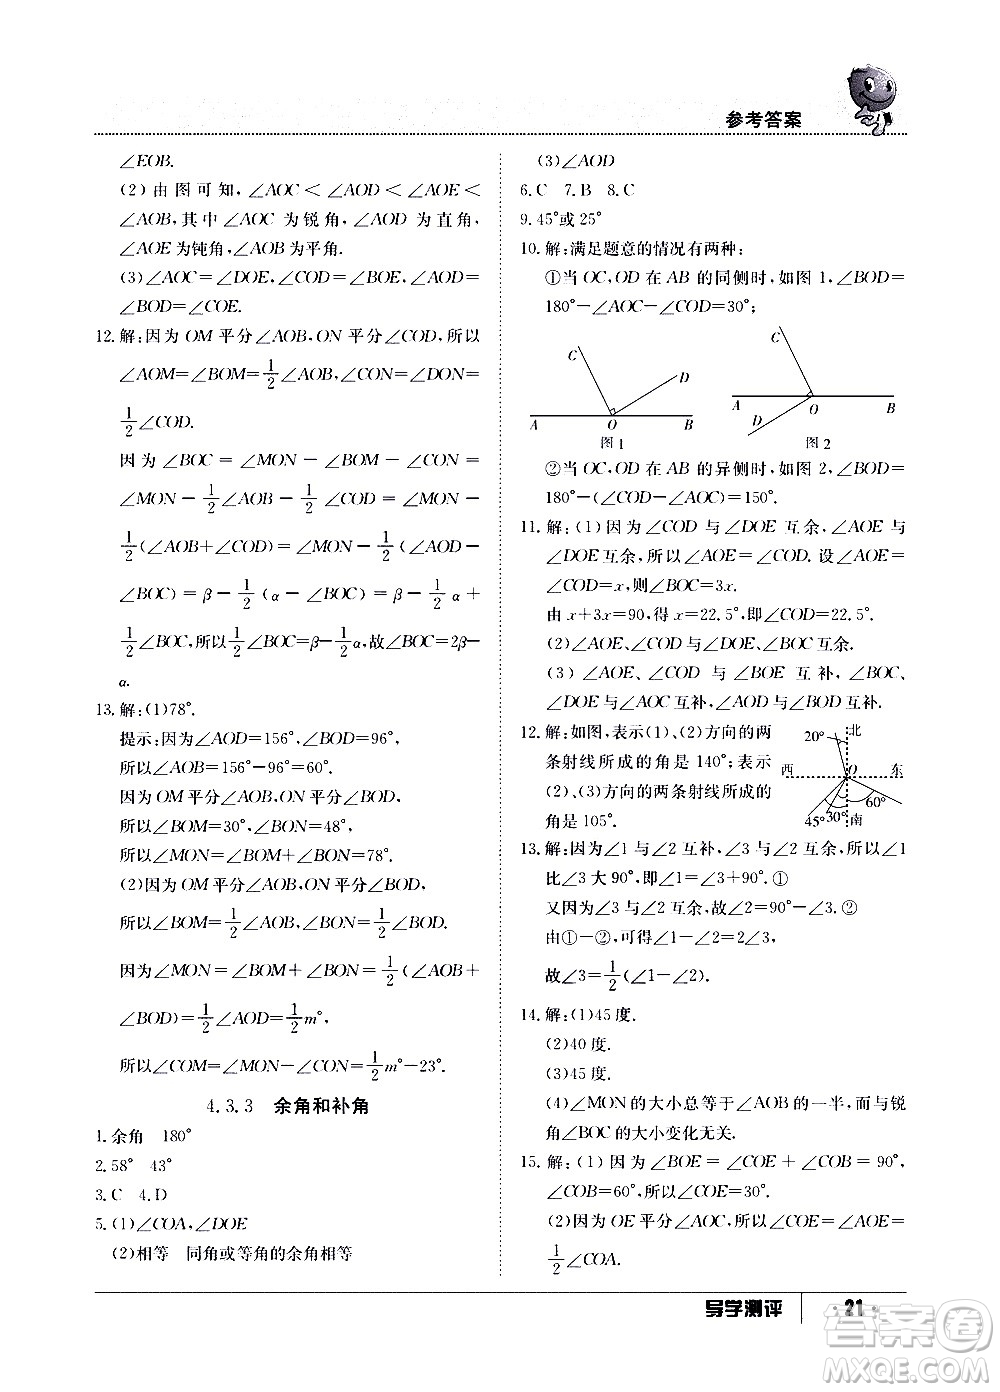 参考答案
∠EOB.
(2)由图可知,∠AOC＜∠AOD＜∠AOE＜
∠AOB,其中∠AOC 为锐角,∠AOD 为直角,
∠AOE为钝角,∠AOB为平角.
(3)∠AOC=∠DOE,∠COD=∠BOE,∠AOD=
∠BOD=∠COE.
12.解:因为OM平分∠AOB,ON平分∠COD,所以
∠AOM=∠BOM=1/2∠AOB,∠CON=∠DON=
1/2∠COD.
因为∠BOC=∠MON-∠BOM-∠CON=
∠MON-1/2∠AOB-1/2∠COD=∠MON-
1/2(∠AOB+∠COD)=∠MON-1/2(∠AOD-
∠BOC)=β-1/2(α-∠BOC)=β-1/2α+
1/2∠BOC,所以1/2∠BOC=β-1/2α,故∠BOC=2β-
α.
13.解:(1)78°.
提示:因为∠AOD=156°,∠BOD=96°,
所以∠AOB=156°-96°=60°.
因为OM平分∠AOB,ON平分∠BOD,
所以∠BOM=30°,∠BON=48°,
所以∠MON=∠BOM+∠BON=78°.
(2)因为OM平分∠AOB,ON平分∠BOD,
所以∠BOM=1/2∠AOB,∠BON=1/2∠BOD.
因为∠MON=∠BOM+∠BON=1/2(∠AOB+
∠BOD)=1/2∠AOD=1/2m°,
所以∠COM=∠MON-∠CON=1/2m°-23°.
4.3.3 余角和补角
1.余角 180°
2.58° 43°
3.C 4.D
5.(1)∠COA,∠DOE
(2)相等 同角或等角的余角相等
(3)∠AOD
6.C 7.B 8.C
9.45°或25°
10.解:满足题意的情况有两种:
①当OC,OD在AB的同侧时,如图1,∠BOD=
180°-∠AOC-∠COD=30°;
C D A O B
图1
C A O B D
图2
②当OC,OD在AB的异侧时,如图2,∠BOD=
180°-(∠COD-∠AOC)=150°.
11.解:(1)因为∠COD与∠DOE互余,∠AOE与
∠DOE互余,所以∠AOE=∠COD.设∠AOE=
∠COD=x,则∠BOC=3x.
由x+3x=90,得x=22.5°,即∠COD=22.5°.
(2)∠AOE、∠COD与∠DOE、∠BOC互余.
(3)∠AOE、∠COD与∠BOE互补,∠BOC、
∠DOE与∠AOC互补,∠AOD与∠BOD互补.
12.解:如图,表示(1)、(2)方向的两
条射线所成的角是140°;表示
(2)、(3)方向的两条射线所成的
角是105°.
20° 北
西 O 东
60°
45° 30° 南
13.解:因为∠1与∠2互补,∠3与∠2互余,所以∠1
比∠3大90°,即∠1=∠3+90°.①
又因为∠3与∠2互余,故∠2=90°-∠3.②
由①-②,可得∠1-∠2=2∠3,
故∠3=1/2(∠1-∠2).
14.解:(1)45度.
(2)40度.
(3)45度.
(4)∠MON的大小总等于∠AOB的一半,与锐
角∠BOC的大小变化无关.
15.解:(1)因为∠BOE=∠COE+∠COB=90°,
∠COB=60°,所以∠COE=30°.
(2)因为OE平分∠AOC,所以∠COE=∠AOE=
1/2∠COA.
导学测评 ·21·
答案卷
MXQE.COM